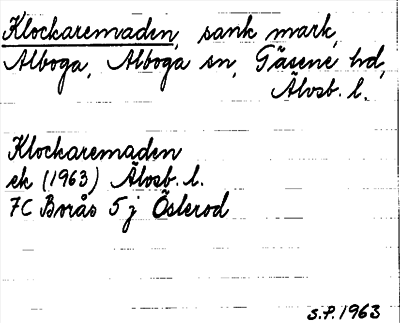 Klockaremaden, sank mark,
Alboga, Alboga sn, Gäsene hd,
Älvsb. l.
Klockaremaden
ek (1963) Älvsb. l.
7C Borås 5 j Österod
S.P. 1963